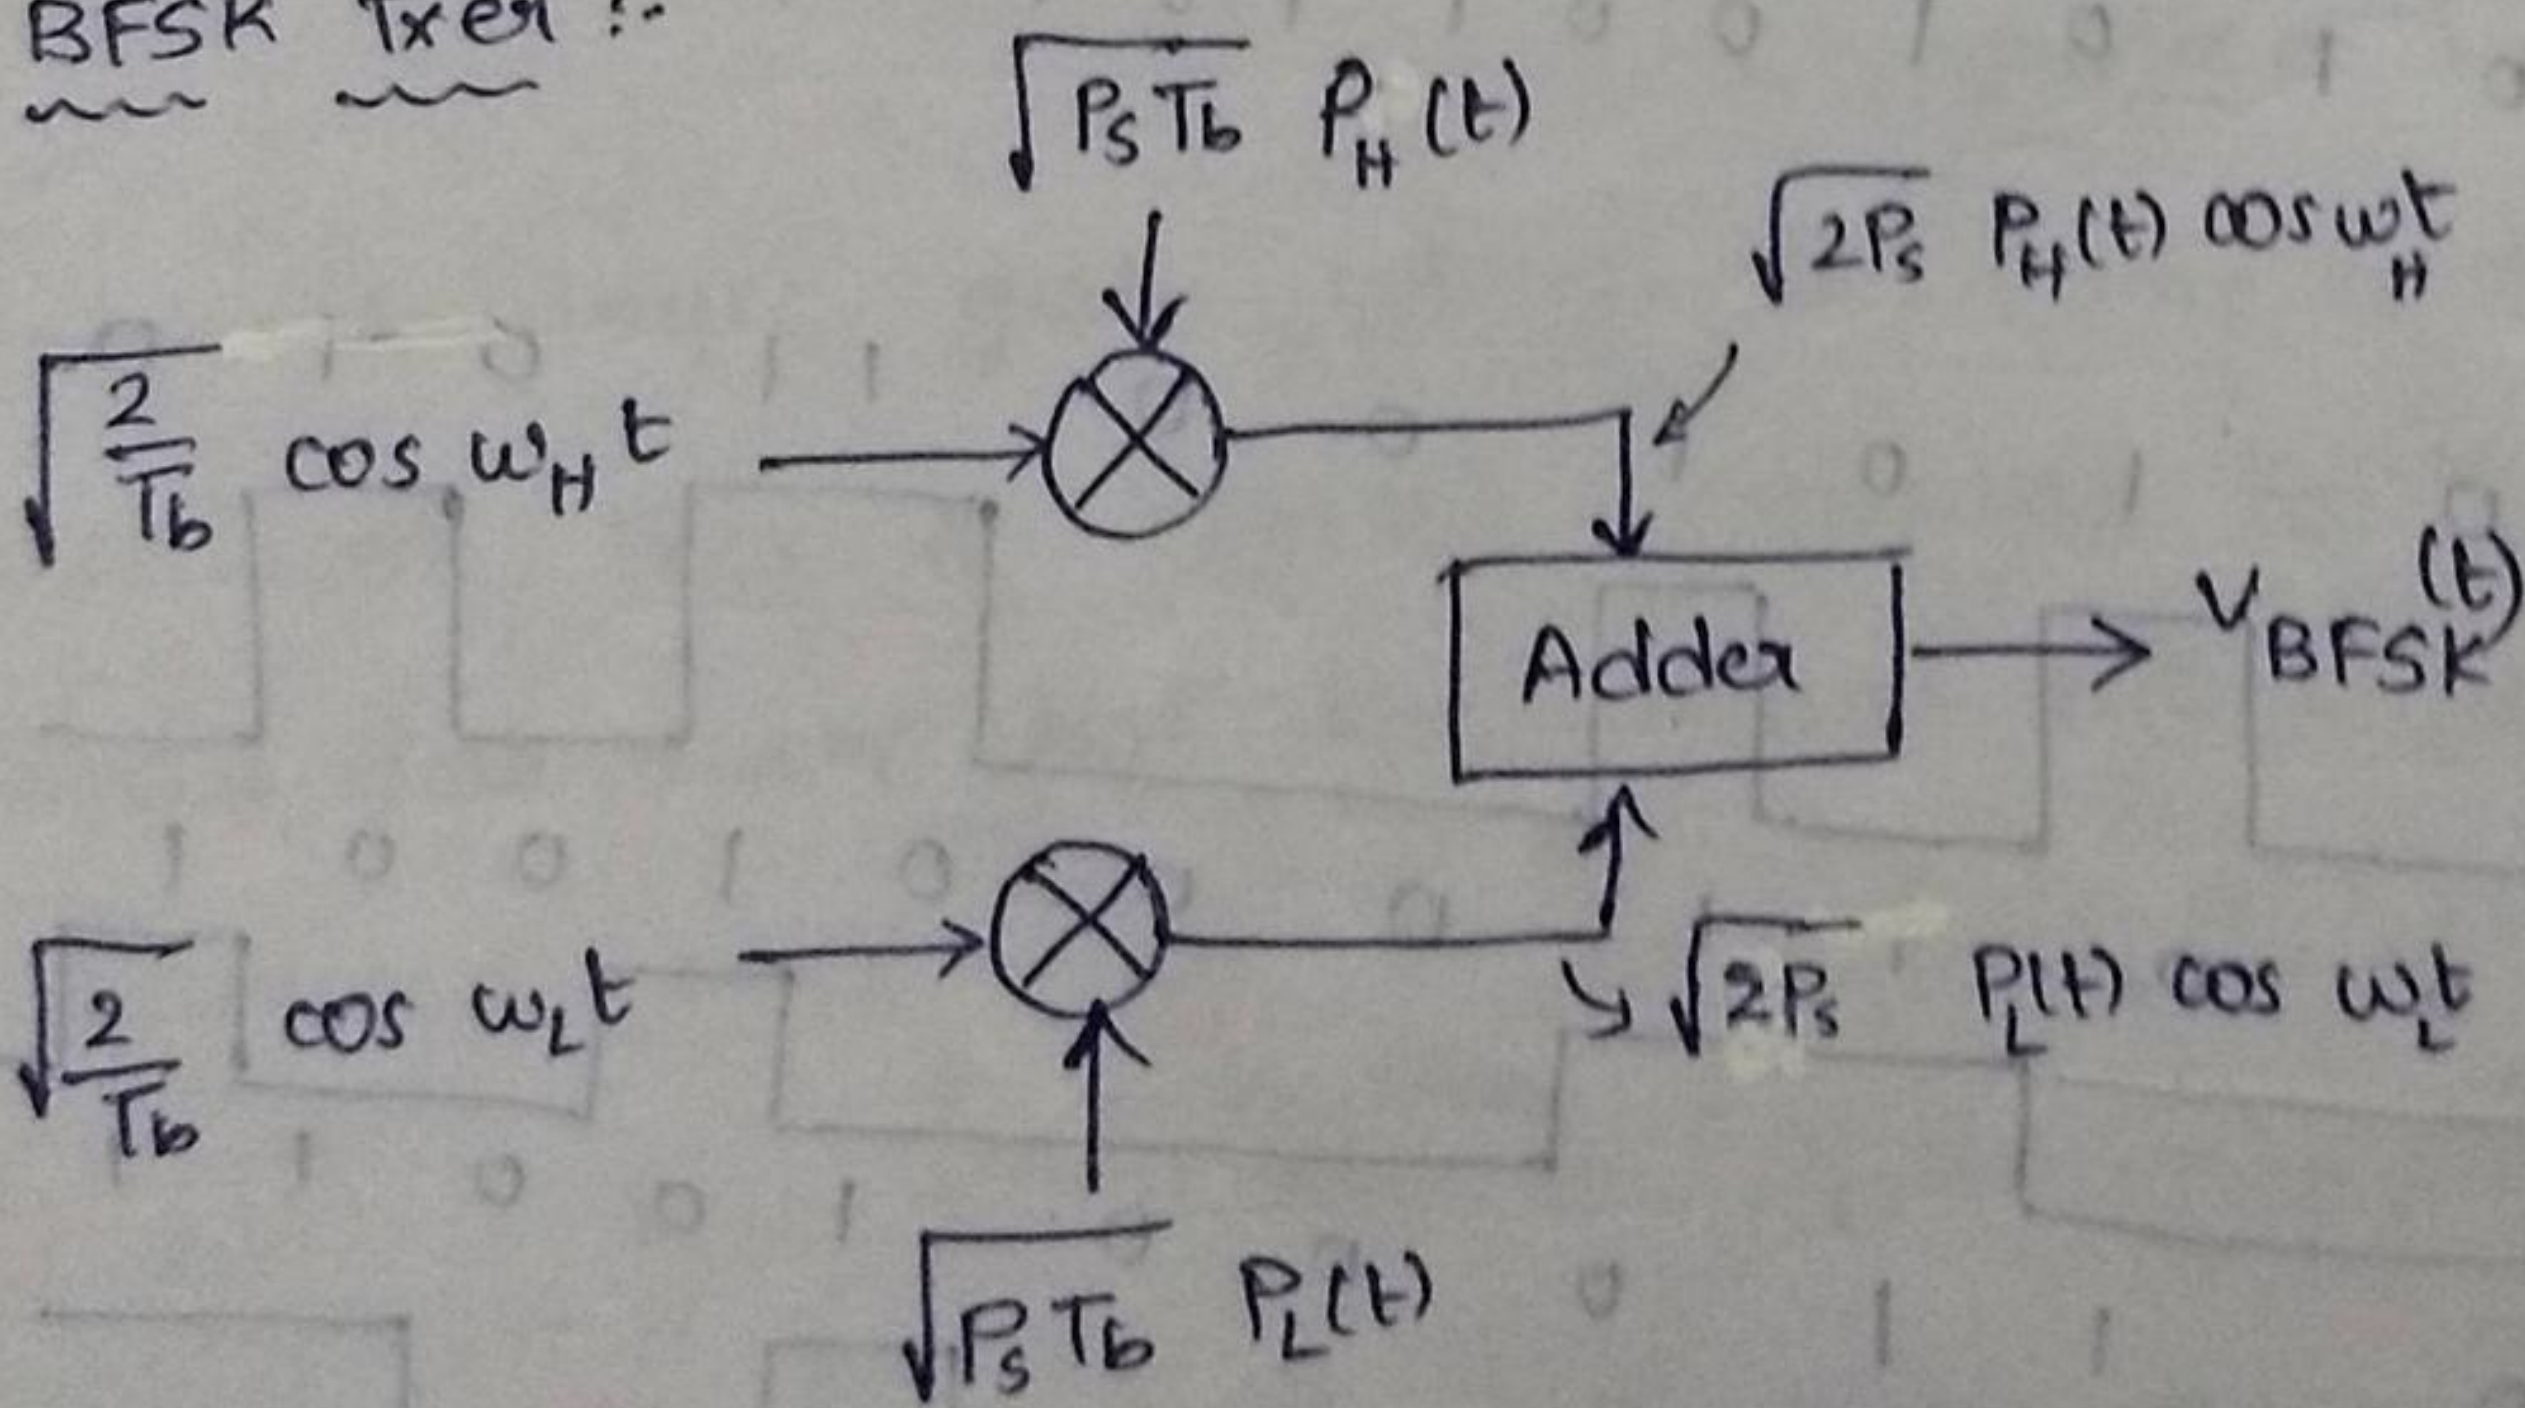 BFSK Txer :-
√PsTb PH(t)
√2Ps PH(t) cos ωHt
√2/Tb cos ωHt
Adder
VBFSK(t)
√2/Tb cos ωLt
√2Ps PL(t) cos ωLt
√PsTb PL(t)